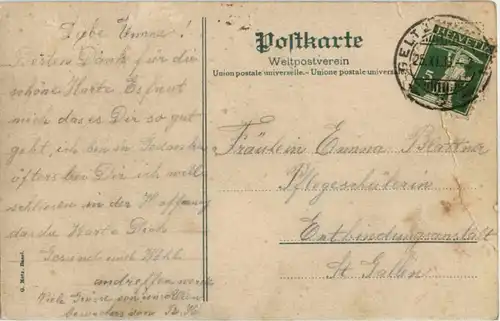 Liebe Emma!
Besten Dank für die
schöne Karte Es freut
mich das es Dir so gut
geht, ich bin in Gedanken
öfters bei Dir ich will
schliessen in der Hoffnung
das die Karte Dich
Gesund und Wohl
andreffen werde
Viele Grüsse von
besonders von
G. Metz, Basel.
Postkarte
Weltpostverein
Union postale universelle. - Unione postale universale
HELVETIA
5
Fräulein Emma Blattner
Pflegeschülerin
Entbindungsanstalt
St. Gallen